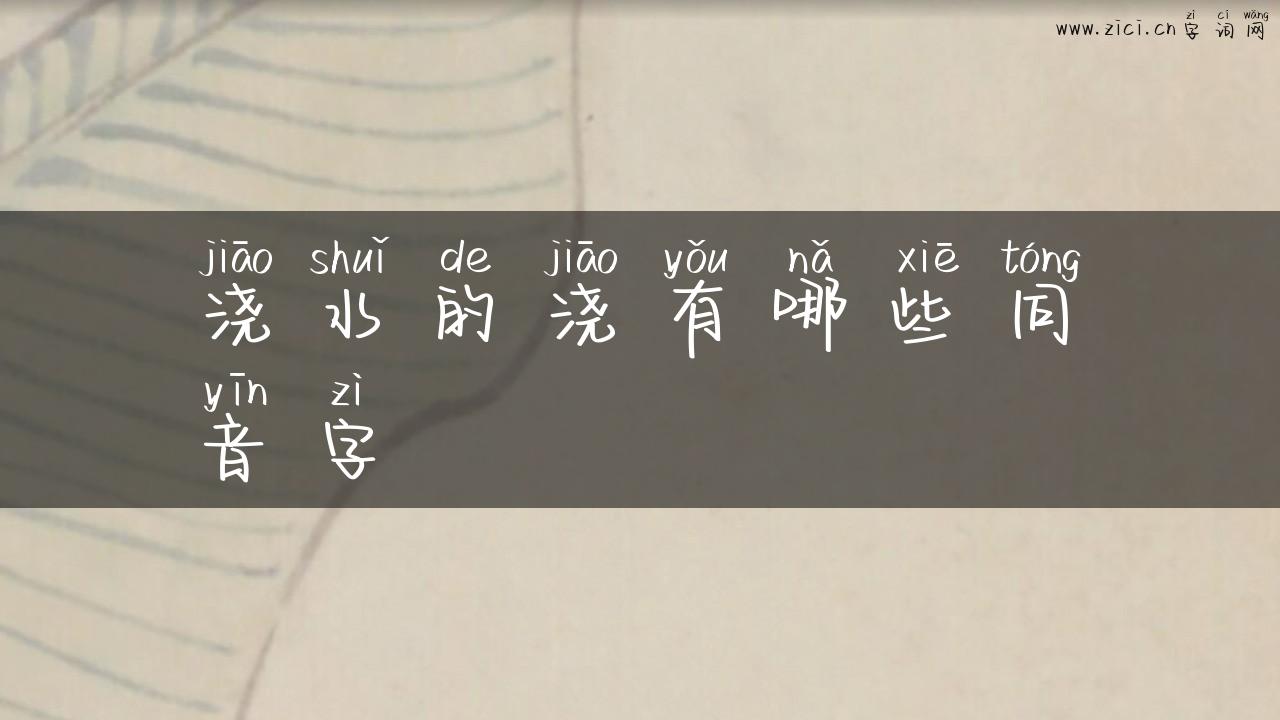 zì cí wǎng
www.zici.cn 字 词 网
jiāo shuǐ de jiāo yǒu nǎ xiē tóng
浇 水 的 浇 有 哪 些 同
yīn zì
音 字